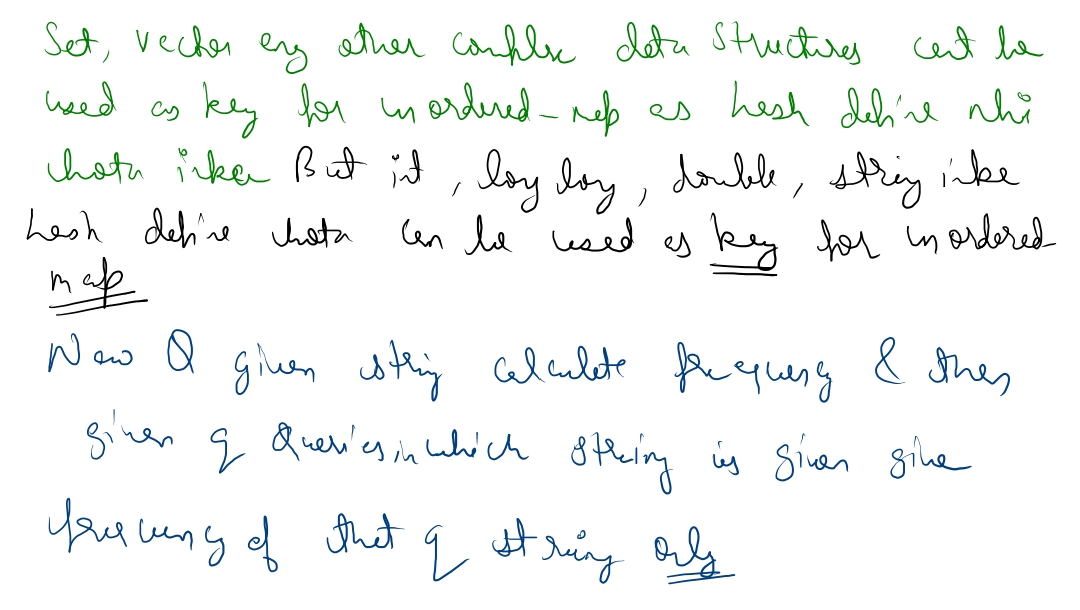 Set, vector any other complex data structures cant be
used as key for unordered-map as hash define nhi
hota inka But int, long long, double, string inke
hash define hota can be used as key for unordered
map
Now Q given string calculate frequency & then
given q Queries, in which string is given give
frequency of that q string only